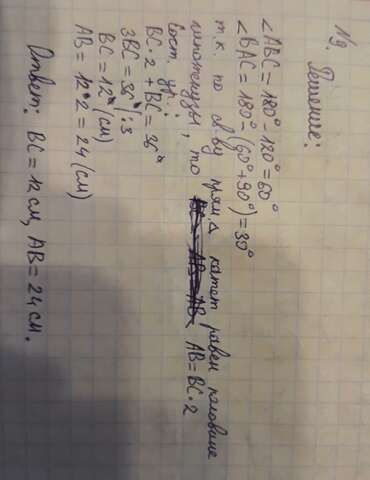 №9.
Решение:
∠ABC = 180° - 120° = 60°
∠BAC = 180° - (60° + 90°) = 30°
т.к. по св-ву прям. Δ катет равен половине
гипотенузы, то AB = BC · 2
Сост. ур.:
BC · 2 + BC = 36
3BC = 36 | :3
BC = 12 (см)
AB = 12 · 2 = 24 (см)
Ответ: BC = 12 см, AB = 24 см.